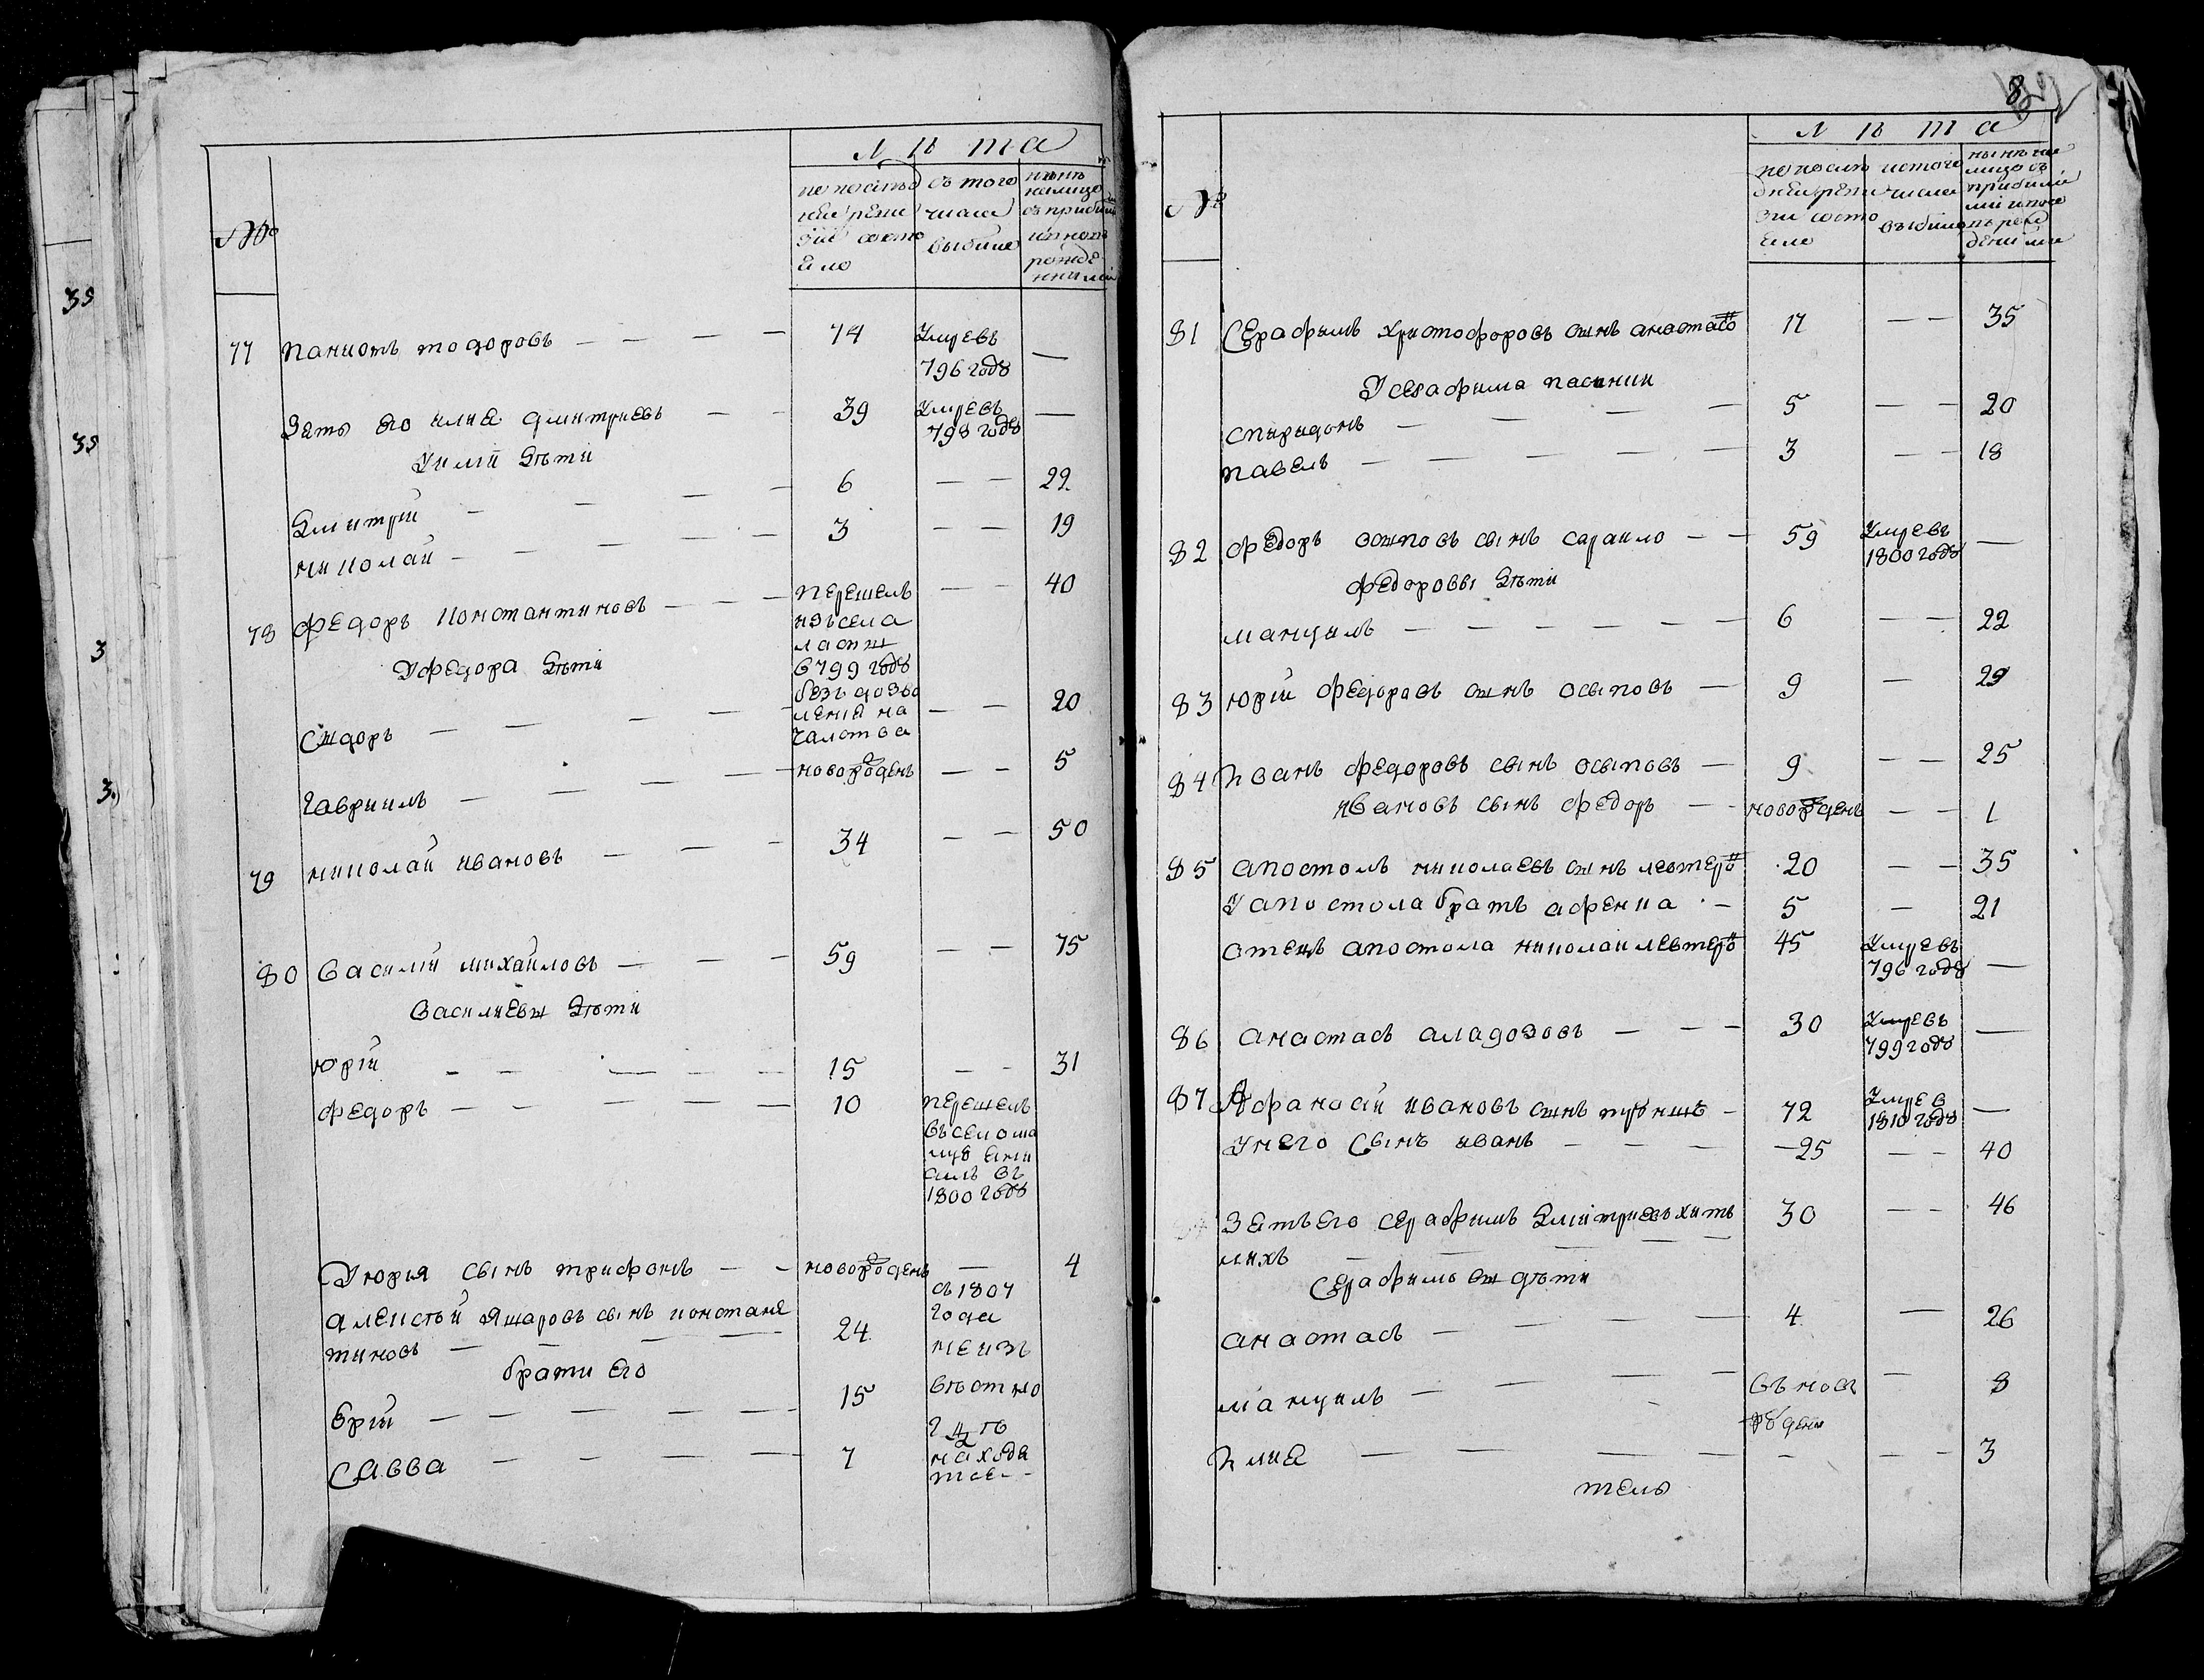 35
35
3
3
№
Лѣта
по послѣд
ней реви
зїи состо
яло
съ того
числа
выбыло
нынѣ
налицо
съ прибылы
и новo
рожде
нными
77 Паниотъ тодоровъ — — — — 74 Умревъ
796 годȣ —
Зять его илиа дмитриевъ — — 39 Умревъ —
798 годȣ
У илїи Дѣти
Дмитрїй — — — — 6 — — 22
николай — — — — — 3 — — 19
78 федоръ константиновъ — — — перешелъ — — 40
изъ села
ласпи
в 799 годȣ
безъ дозво
ленїя на
чалства
У федора Дѣти
Сидоръ — — — — — — 20
Гавриилъ — — — — новорȣденъ — — 5
79 николай ивановъ — — — 34 — — 50
80 Василїй михайловъ — — — 59 — — 75
Василиевы Дѣти
юрїй — — — — — — 15 — — 31
федоръ — — — — — 10 перешелъ
въ село ма
1800 годȣ
У юрия сынъ трифонъ — — новорȣденъ — 4
алексѣй сынъ констан
тиновъ — — — — 24
съ 1807
года
брати его
ȣрїй — — — — — 15
Савва — — — — 7
находя
тся - -
8
№
Лѣта
по послѣ
дней реви
зїи состо
яло
ис того
числа
выбыло
нынѣ на
лицо съ
прибылы
ми
81 Серафимъ христофоровъ сынъ анастасо 17 — — 35
У серафима пасинки
спиридонъ — — — — 5 — — 20
павелъ — — — — — 3 — — 18
82 федоръ осиповъ сынъ сараило — — 59 Умревъ —
1800 годȣ
федоровы Дѣти
мануилъ — — — — — — 6 — — 22
83 юрїй федоровъ сынъ осыповъ — 9 — 29
84 Иванъ федоровъ сынъ осыповъ — 9 — — 25
ивановъ сынъ федоръ — — новорȣденъ — — 1
85 апостолъ николаевъ сынъ левтеро 20 — — 35
У апостола братъ афенка — 5 — 21
отецъ апостола николай левтеро 45 Умревъ
796 годȣ —
86 анастасъ аладозовъ — — — 30 Умревъ —
799 годȣ
87 Афанасий ивановъ сынъ — 72 Умрев —
1810 годȣ
У него Сынъ иванъ — — — 25 — — 40
Зять его серафимъ Дмитриевъ хить 30 — — 46
лихъ — — — — —
Серафимовы дѣти
анастасъ — — — — — 4 — 26
мануилъ — — — въ нова — 8
рȣдени
Илиа — — — — — — — 3
тель